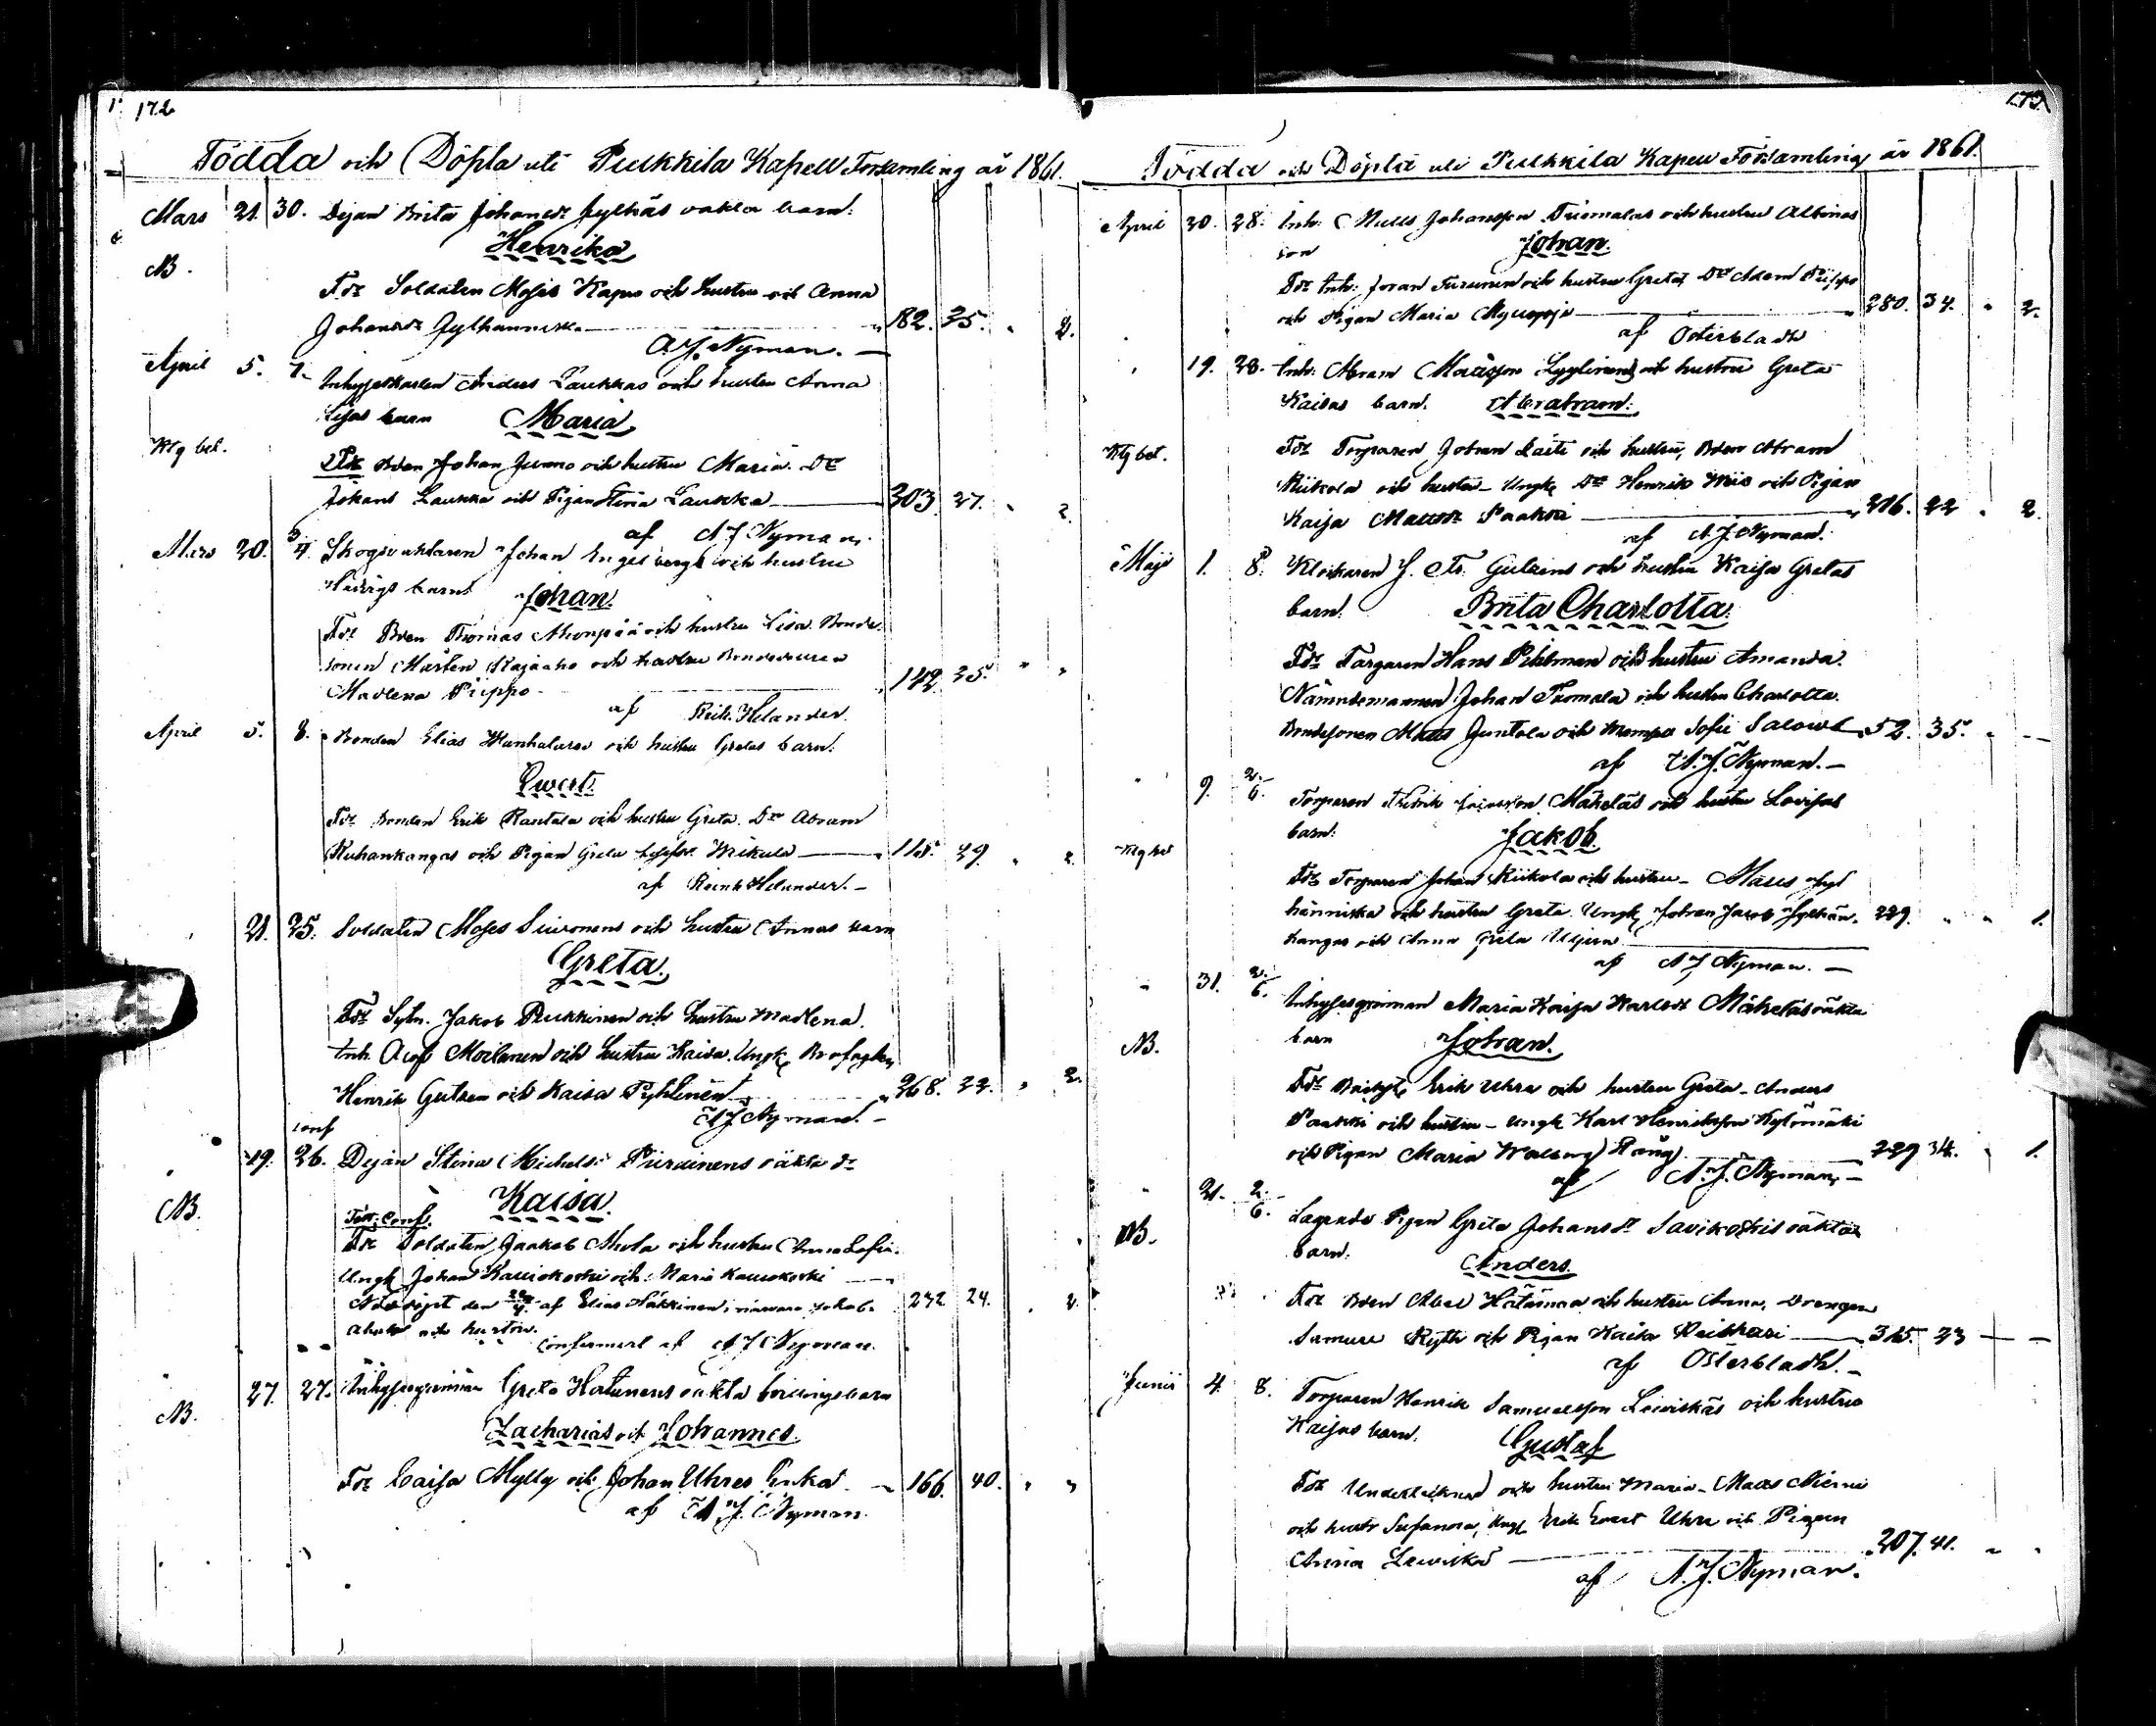 172
Födda och Döpta uti Pulkkila Kapell Församling år 1861.
Mars 21. 30. Pigan Brita Johansdr Jylhäs oäkta barn:
Henrika
NB.
Fdr Soldaten Moses Kapu och hustru och Anna
Johansdr Jylhänniska 182. 35. " 2.
A. J. Nyman.
April 5. 7. Inhyseskarlen Anders Laukkas och hustru Anna
Lisas barn Maria
Ktg bet.
Fdr Bden Johan Junno och hustru Maria. Dr
Johans Laukka och Pigan Stina Laukka 303. 27. " 2.
af A J Nyman
Mars 20. 3/4. Skogsvaktaren Johan Engelbergs och hustru
Hedvigs barn Johan.
Fdr Bden Thomas Ahonpää och hustru Lisa. Bonde-
sonen Mårten Rajaaho och hustru Bondedottren
Madlena Piippo 142. 35. " "
af Reik. Helander.
April 5. 8. Bonden Elias Wanhalas och hustru Gretas barn:
Evert.
Fdr Bonden Erik Rantala och hustru Greta. Dr Abram
Ruhankangas och Pigan Greta Mikula 115. 29. " 2.
af Reink Helander.
21. 25. Soldaten Moses Siironens och hustru Annas barn
Greta.
Fdr Sytn. Jakob Pukkinen och hustru Madlena.
Inh. Moilanen och hustru Kaisa. Ungk
Henrik Gulsen och Kaisa Pyhlinen 268. 22. " 2.
A J Nyman.
conf
19. 26. Pigan Stina Michelsdr Piirainens oäkta dr
Kaisa.
NB.
Fött. Conf.
Fdr Soldaten Jaakob Ahola och hustru Anna Sofia.
Ungk Johan Kauiokoski och Maria Kauiokoski
Nöddöpt den af Elias Häkkinen, i närvaro Jakob 232. 24. " 2.
Ahola och hustru.
Confirmerat af A J Nyman.
27. 27. Inhysesqvinnan Greta Hartunens oäkta tvillingsbarn
NB.
Zacharias och Johannes.
Fdr Caisa Mylly och Johan Uhres Enka 166. 40. " "
af A. J. Nyman.
173
Födda och Döpta uti Pulkkila Kapell Församling år 1861.
April 20. 28. Inh. Matts Johansson Tuomalas och hustru Albinas
son Johan.
Fdr Inh: Joran Turunen och hustru Greta, Dr Adam Piippo
och Pigan Maria Myllyoja 280. 34. " 2.
af Österbladh
" 19. 28. Inh: Abram Mattsson Lyylinens och hustru Greta
Kaisas barn. Abraham:
Ktg bet.
Fdr Torparen Johan Laiti och hustru, Bden Abram
Riikola och hustru - Ungk Dr Henrik Wiio och Pigan
Kaisa Mattsdr Paakki 216. 22 " 2.
af A. J. Nyman.
Maji 1. 8. Klockaren J. Fr. Gulséns och hustru Kaisa Gretas
barn. Brita Charlotta.
Fdr Färgaren Hans Pihlman och hustru Amanda.
Nämndemannen Johan Tuomala och hustru Charlotta.
Bondesonen Matts Juntola och Mamsel Sofie 52. 35. " "
af A. J. Nyman.
" 9. 2/6. Torparen Fredrik Mäheläs och hustru Lovisas
barn: Jakob.
Ktg bet
Fdr Torparen Johan Riikola och hustru - Matts Jyl
hänniska och hustru Greta. Ungk Johan Jacob Jylhän- 229. " " 1.
kangas och Anna Greta Uljua
af A J Nyman.
" 31. 2/6. Inhysesqvinnan Maria Kaisa Karlsdr Mäheläs oäkta
barn Johan.
NB.
Fdr Erik Uhre och hustru Greta. Anders
Paakki och hustru - Ungk Karl Henriksson Kylömäki
och Pigan Maria Walborg Ring 229 34. " 1.
af A. J. Nyman,
" 21. 2/6. Lagrade Pigan Greta Johansdr Savikoskis oäkta
barn. Anders.
NB.
Fdr Bden Abel Hätimaa och hustru Anna, Drengen
Samuel Rytk och Pigan Kaisa Reiskari 315. 23
af Österbladh.
Junii 4. 8. Torparen Henrik Samuelsson Leiviskäs och hustru
Kaisas barn. Gustaf
Fdr Undertecknad och hustru Maria - Matts Niemi
och hustr Susanna, Ungk Erik Evert Uhre och Pigan
Anna Leiviskä 207. 41. " "
af A. J. Nyman.